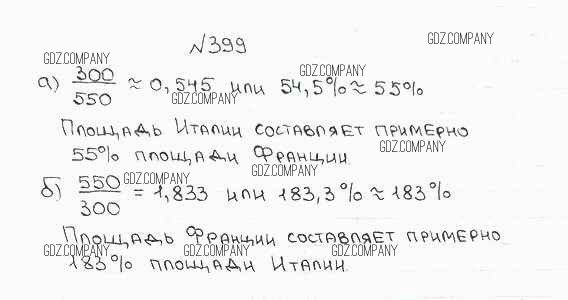 №399
GDZ.COMPANY
GDZ.COMPANY
а) 300/550 ≈ 0,545 или 54,5% ≈ 55%
GDZ.COMPANY
GDZ.COMPANY
Площадь Италии составляет примерно
55% площади Франции.
GDZ.COMPANY
GDZ.COMPANY
б) 550/300 = 1,833 или 183,3% ≈ 183%
GDZ.COMPANY
Площадь Франции составляет примерно
GDZ.COMPANY GDZ.COMPANY GDZ.COMPANY
183% площади Италии.